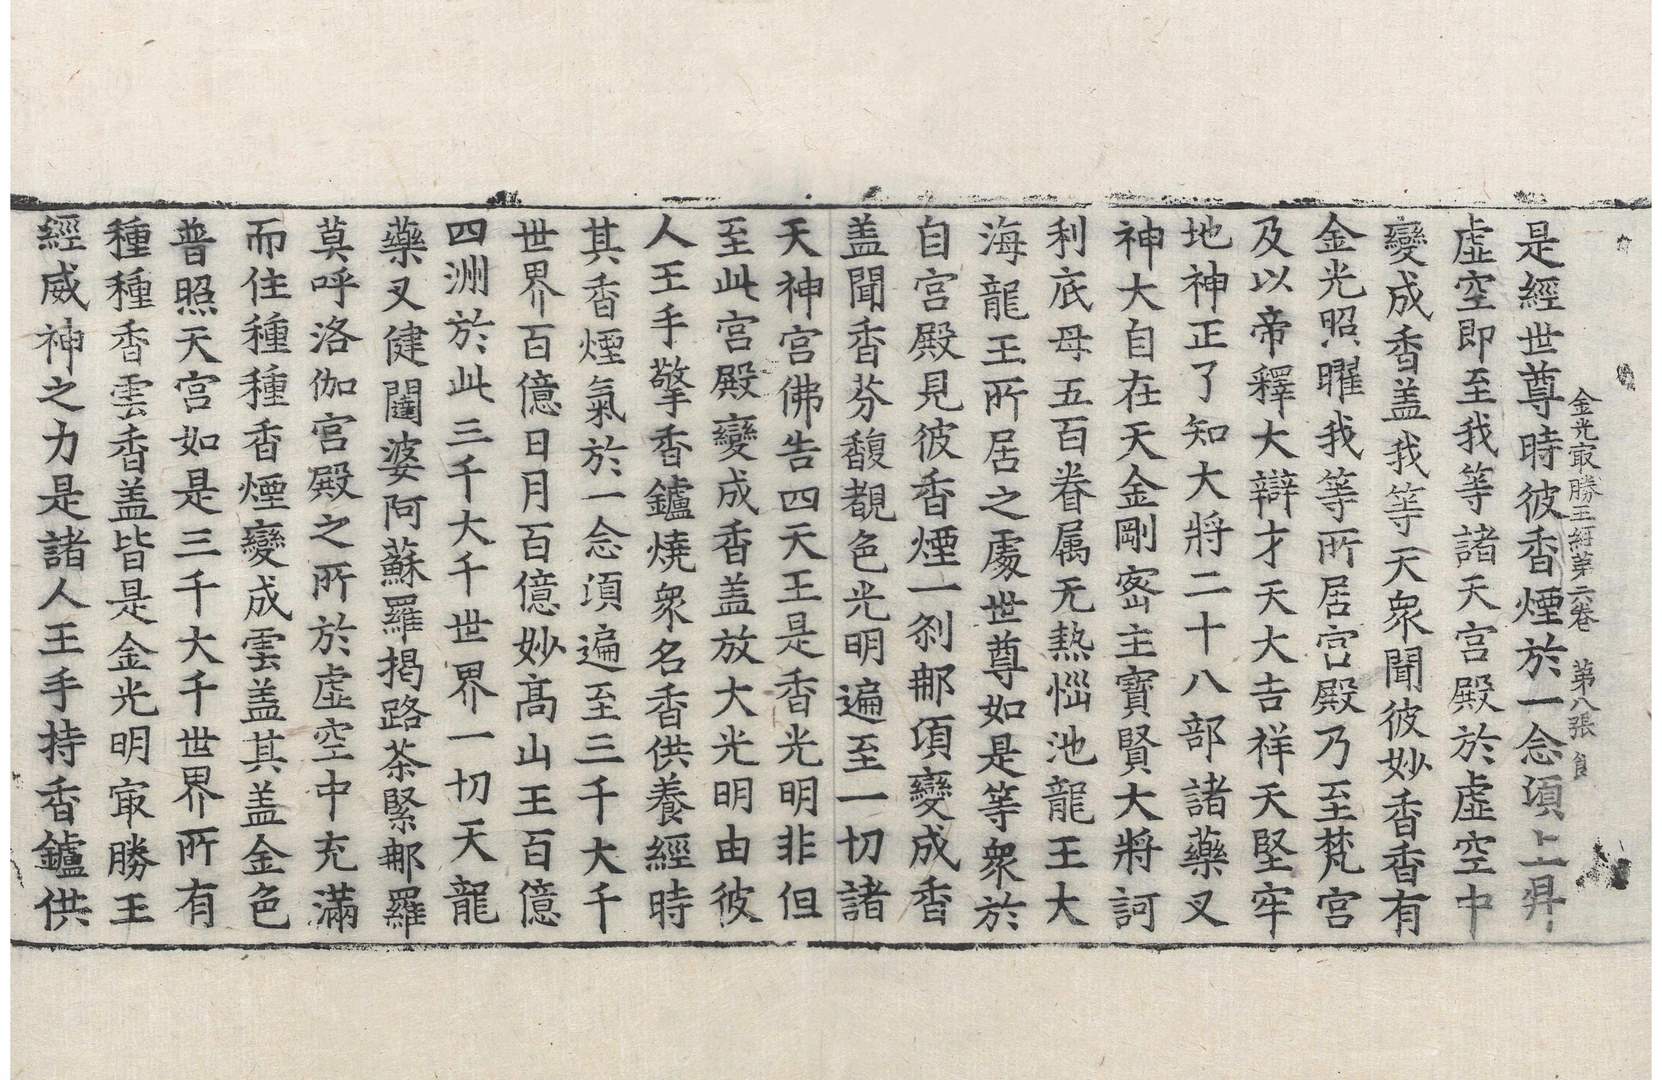 金光㝡勝王経第六卷　第八張　食
是經世尊時彼香煙於一念頃上昇
虛空即至我等諸天宮殿於虛空中
變成香盖我等天衆聞彼妙香香有
金光照曜我等所居宮殿乃至梵宮
及以帝釋大辯才天大吉祥天堅牢
地神正了知大將二十八部諸藥叉
神大自在天金剛密主寶賢大將訶
利底母五百眷属无熱惱池龍王大
海龍王所居之處世尊如是等衆於
自宮殿見彼香煙一刹那頃變成香
盖聞香芬馥覩色光明遍至一切諸
天神宮佛告四天王是香光明非但
至此宮殿變成香盖放大光明由彼
人王手擎香鑪燒衆名香供養經時
其香煙氣於一念頃遍至三千大千
世界百億日月百億妙高山王百億
四洲於此三千大千世界一切天龍
藥叉健闥婆阿蘇羅揭路茶緊那羅
莫呼洛伽宮殿之所於虛空中充滿
而住種種香煙變成雲盖其盖金色
普照天宮如是三千大千世界所有
種種香雲香盖皆是金光明㝡勝王
經威神之力是諸人王手持香鑪供